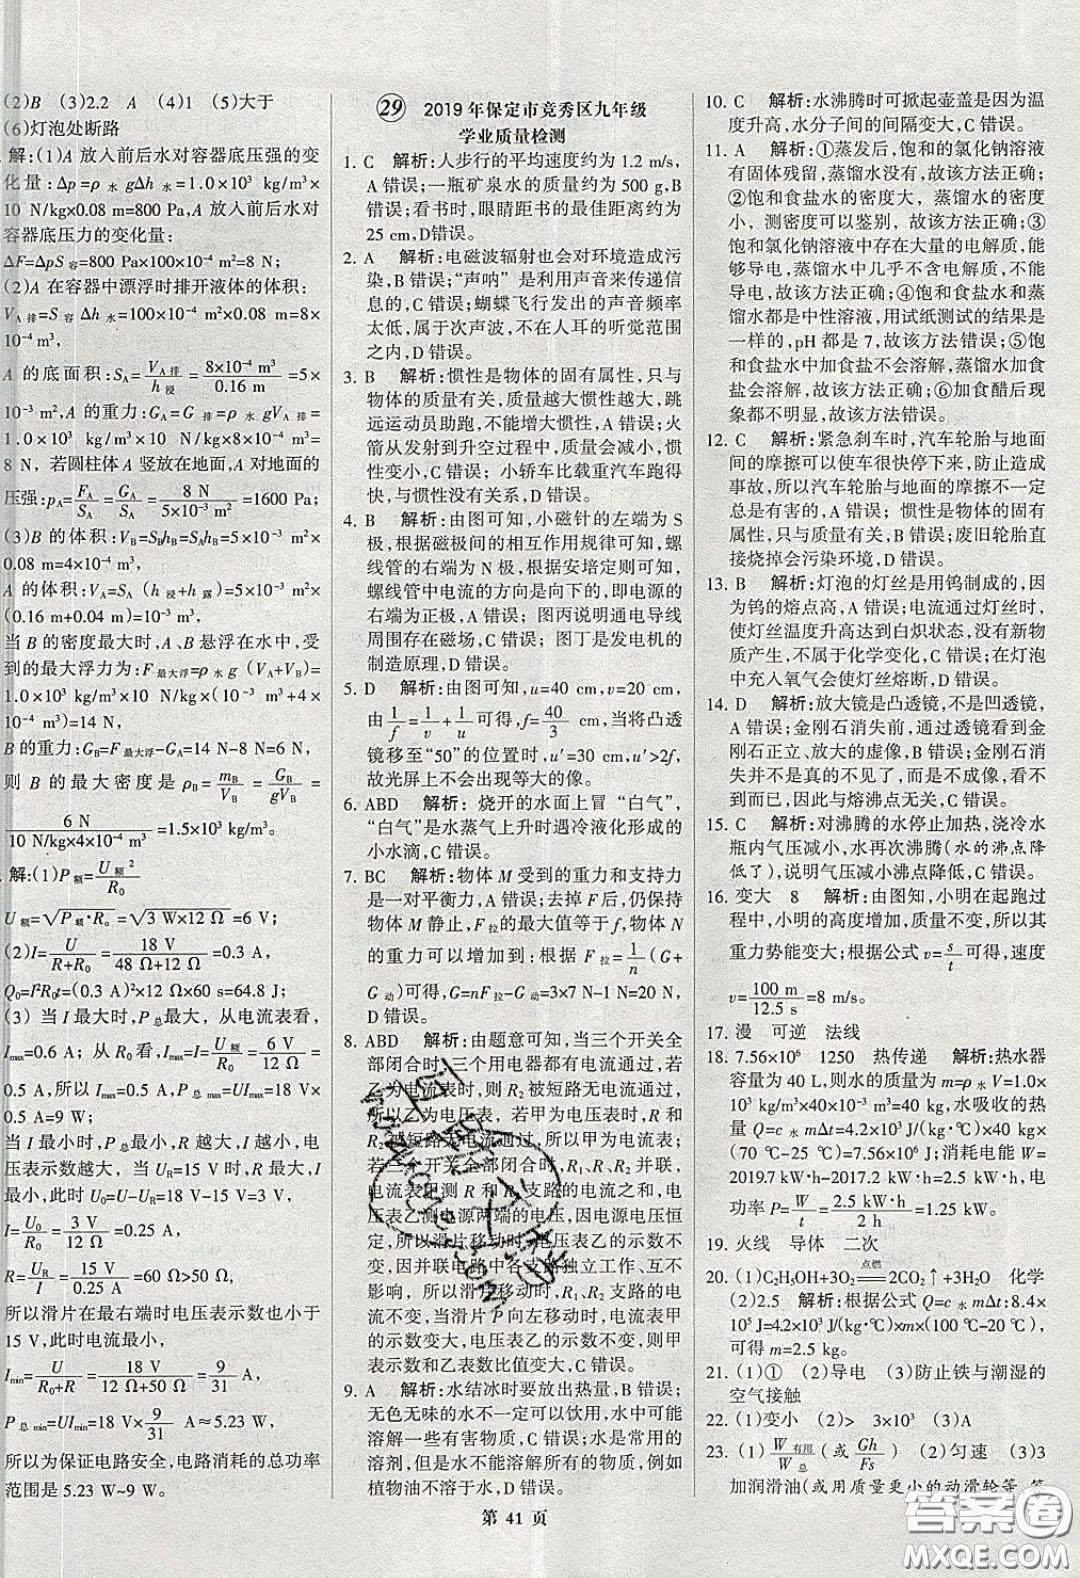 (2)B (3)2.2 A (4)1 (5)大于
(6)灯泡处断路
解:(1)A 放入前后水对容器底压强的变
化量:Δp=ρ水gΔh水=1.0×10³ kg/m³×
10 N/kg×0.08 m=800 Pa,A 放入前后水对
容器底压力的变化量:
ΔF=ΔpS容=800 Pa×100×10⁻⁴ m²=8 N;
(2)A 在容器中漂浮时排开液体的体积:
V_A排=S容Δh水=100×10⁻⁴ m²×0.08 m=8×
10⁻⁴ m³,
A 的底面积:S_A=V_A排/h浸=8×10⁻⁴ m³/0.16 m=5×
10⁻³ m²,A 的重力:G_A=G排=ρ水gV_A排=
1.0×10³ kg/m³×10 N/kg×8×10⁻⁴ m³=
8 N,若圆柱体A 竖放在地面,A 对地面的
压强:p_A=F_A/S_A=G_A/S_A=8 N/5×10⁻³ m²=1600 Pa;
(3)B 的体积:V_B=S_Bh_B=S_Ah_B=5×10⁻³ m²×
0.08 m=4×10⁻⁴ m³;
A 的体积:V_A=S_A(h浸+h露)=5×10⁻³ m²×
(0.16 m+0.04 m)=1×10⁻³ m³;
当 B 的密度最大时,A、B悬浮在水中,受
到的最大浮力为:F最大浮=ρ水g(V_A+V_B)=
1.0×10³ kg/m³×10 N/kg×(1×10⁻³ m³+4×
10⁻⁴ m³)=14 N,
B 的重力:G_B=F最大浮-G_A=14 N-8 N=6 N;
则 B 的最大密度是 ρ_B=m_B/V_B=G_B/gV_B=
6 N/10 N/kg×4×10⁻⁴ m³=1.5×10³ kg/m³.
解:(1)P额=U额²/R₀
U额=√P额·R₀=√3 W×12 Ω=6 V;
(2)I=U/R+R₀=18 V/48 Ω+12 Ω=0.3 A,
Q₀=I²R₀t=(0.3 A)²×12 Ω×60 s=64.8 J;
(3)当 I 最大时,P总最大,从电流表看,
Imax=0.6 A;从R₀看,Imax=I=U额/R₀=6 V/12 Ω=
0.5 A,所以Imax=0.5 A,P总max=UImax=18 V×
0.5 A=9 W;
当 I 最小时,P总最小,R 越大,I 越小,电
压表示数越大,当 U_R=15 V 时,R 最大,I
最小,此时 U₀=U-U_R=18 V-15 V=3 V,
I=U₀/R₀=3 V/12 Ω=0.25 A,
R=U_R/I=15 V/0.25 A=60 Ω>50 Ω,
所以滑片在最右端时电压表示数也小于
15 V,此时电流最小,
Imin=U/R₀+R=18 V/12 Ω+50 Ω=9/31 A,
P总min=UImin=18 V×9/31 A≈5.23 W,
所以为保证电路安全,电路消耗的总功率
范围是5.23 W~9 W。
29 2019 年保定市竞秀区九年级
学业质量检测
1. C 解析:人步行的平均速度约为 1.2 m/s,
A 错误;一瓶矿泉水的质量约为 500 g,B
错误;看书时,眼睛距书的最佳距离约为
25 cm,D错误。
2. A 解析:电磁波辐射也会对环境造成污
染,B 错误;“声呐”是利用声音来传递信
息的,C 错误;蝴蝶飞行发出的声音频率
太低,属于次声波,不在人耳的听觉范围
内,D 错误。
3. B 解析:惯性是物体的固有属性,只与
物体的质量有关,质量越大惯性越大,跳
远运动员助跑,不能增大惯性,A 错误;火
箭从发射到升空过程中,质量会减小,惯
性变小,C 错误;小轿车比载重汽车跑得
快,与惯性没有关系,D 错误。
4. B 解析:由图可知,小磁针的左端为 S
极,根据磁极间的相互作用规律可知,螺
线管的右端为 N 极,根据安培定则可知,
螺线管中电流的方向是向上的,即电源的
右端为正极,A 错误;图丙说明通电导线
周围存在磁场,C 错误;图丁是发电机的
制造原理,D 错误。
5. D 解析:由图可知,u=40 cm,v=20 cm,
由1/f=1/v+1/u可得,f=40/3 cm,当将凸透
镜移至“50”的位置时,u′=30 cm,u′>2f,
故光屏上不会出现等大的像。
6. ABD 解析:烧开的水面上冒“白气”,
“白气”是水蒸气上升时遇冷液化形成的
小水滴,C 错误。
7. BC 解析:物体 M 受到的重力和支持力
是一对平衡力,A 错误;去掉 F 后,仍保持
物体M 静止,F拉的最大值等于f,物体 N
的重力可以增加到:根据 F拉=1/n(G+
G动)可得,G=nF拉-G动=3×7 N-1 N=20 N,
D 错误。
8. ABD 解析:由题意可知,当三个开关全
部闭合时,三个用电器都有电流通过,若
乙为电流表时,则R₂被短路无电流通过,
所以乙为电压表;若甲为电压表时,R 和
R₁被短路无电流通过,所以甲为电流表;
若三个开关全部闭合时,R₁、R、R₂ 并联,
电流表甲测 R 和 R₁ 支路的电流之和,电
压表乙测电源两端的电压,因电源电压恒
定,所以滑片移动时,电压表乙的示数不
变,因并联电路中各支路独立工作、互不
影响,所以滑片移动时,R₁ 支路的电
流不变,当滑片 P 向左移动时,电流表甲的
示数变大,电压表乙的示数不变,则甲表
示数和乙表示数比值变大,C 错误。
9. A 解析:水结冰时要放出热量,B 错误;
无色无味的水不一定可以饮用,水中可能
溶解一些有害物质,C 错误;水是常用的
溶剂,但并不能溶解所有物质,例如,植物
油等不能溶于水,D 错误。
10. C 解析:水沸腾时可掀起壶盖是内能
升高,水分子间的间隔变大,C 错误。
11. A 解析:①蒸发后,饱和的氯化钠溶液
有固体残留,蒸馏水没有,故该方法正确;
②饱和食盐水的密度大,蒸馏水的密度
小,测密度可以鉴别,故该方法正确;③
饱和氯化钠溶液中存在大量的电解质,
蒸馏水中几乎不含电解质,不能导电,能
导电,故该方法正确;④饱和食盐水和蒸
馏水都是中性溶液,用试纸测试的结果是
一样的,pH 都是 7,故该方法错误;⑤饱
和食盐水中加食盐不会溶解,蒸馏水加食
盐会溶解,故该方法正确;⑥加食醋后现
象都不明显,故该方法错误。
12. C 解析:紧急刹车时,汽车轮胎与地面
间的摩擦可以使车很快停下来,防止造成
事故,所以汽车轮胎与地面的摩擦不一定
总是有害的,A 错误;惯性是物体的固有
属性,只与质量有关,B 错误;废旧轮胎直
接烧掉会污染环境,D 错误。
13. B 解析:灯泡的灯丝是用钨制成的,因
为钨的熔点高,A 错误;电流通过灯丝时,
使灯丝温度升高达到白炽状态,没有新物
质产生,不属于化学变化,C 错误;在灯泡
中充入氧气会使灯丝熔断,D 错误。
14. D 解析:放大镜是凸透镜,不是凹透镜,
A 错误;金刚石消失前,通过透镜看到金
刚石正立、放大的虚像,B 错误;金刚石消
失并不是汽化,而是燃烧,而不能成像,
因此与熔沸点无关,C 错误。
15. C 解析:对沸腾的水停止加热,浇冷水
瓶内气压减小,水再次沸腾(水的沸点降
低了),说明气压减小沸点降低,C 错误。
16. 变大 8 解析:由图知,小明在起跑过
程中,小明的高度增加,质量不变,所以其
重力势能变大;根据公式 v=s/t可得,速度
v=100 m/12.5 s=8 m/s。
17. 漫 可逆 法线
18. 7.56×10⁶ 1250 热传递 解析:热水器
容量为 40 L,则水的质量为 m=ρ水V=1.0×
10³ kg/m³×40×10⁻³ m³=40 kg,水吸收的热
量 Q=c水mΔt=4.2×10³ J/(kg·℃)×40 kg×
(70 ℃-25 ℃)=7.56×10⁶ J;消耗电能 W=
2019.7 kW·h-2017.2 kW·h=2.5 kW·h,电
功率 P=W/t=2.5 kW·h/2 h=1.25 kW。
19. 火线 导体 二次
20. (1)C₂H₅OH+3O₂=点燃=2CO₂↑+3H₂O 化学
(2)2.5 解析:根据公式 Q=c水mΔt:8.4×
10⁵ J=4.2×10³ J/(kg·℃)×m×(100 ℃-20 ℃),
可得 m=2.5 kg。
21. (1)① (2)导电 (3)防止铁与潮湿的
空气接触
22. (1)变小 (2)> 3×10³ (3)A
23. (1)W有用/W总(或Gh/Fs) (2)匀速 (3)3
加润滑油(或用质量更小的动滑轮等,答
第 41 页
答案圈
MXQE.COM